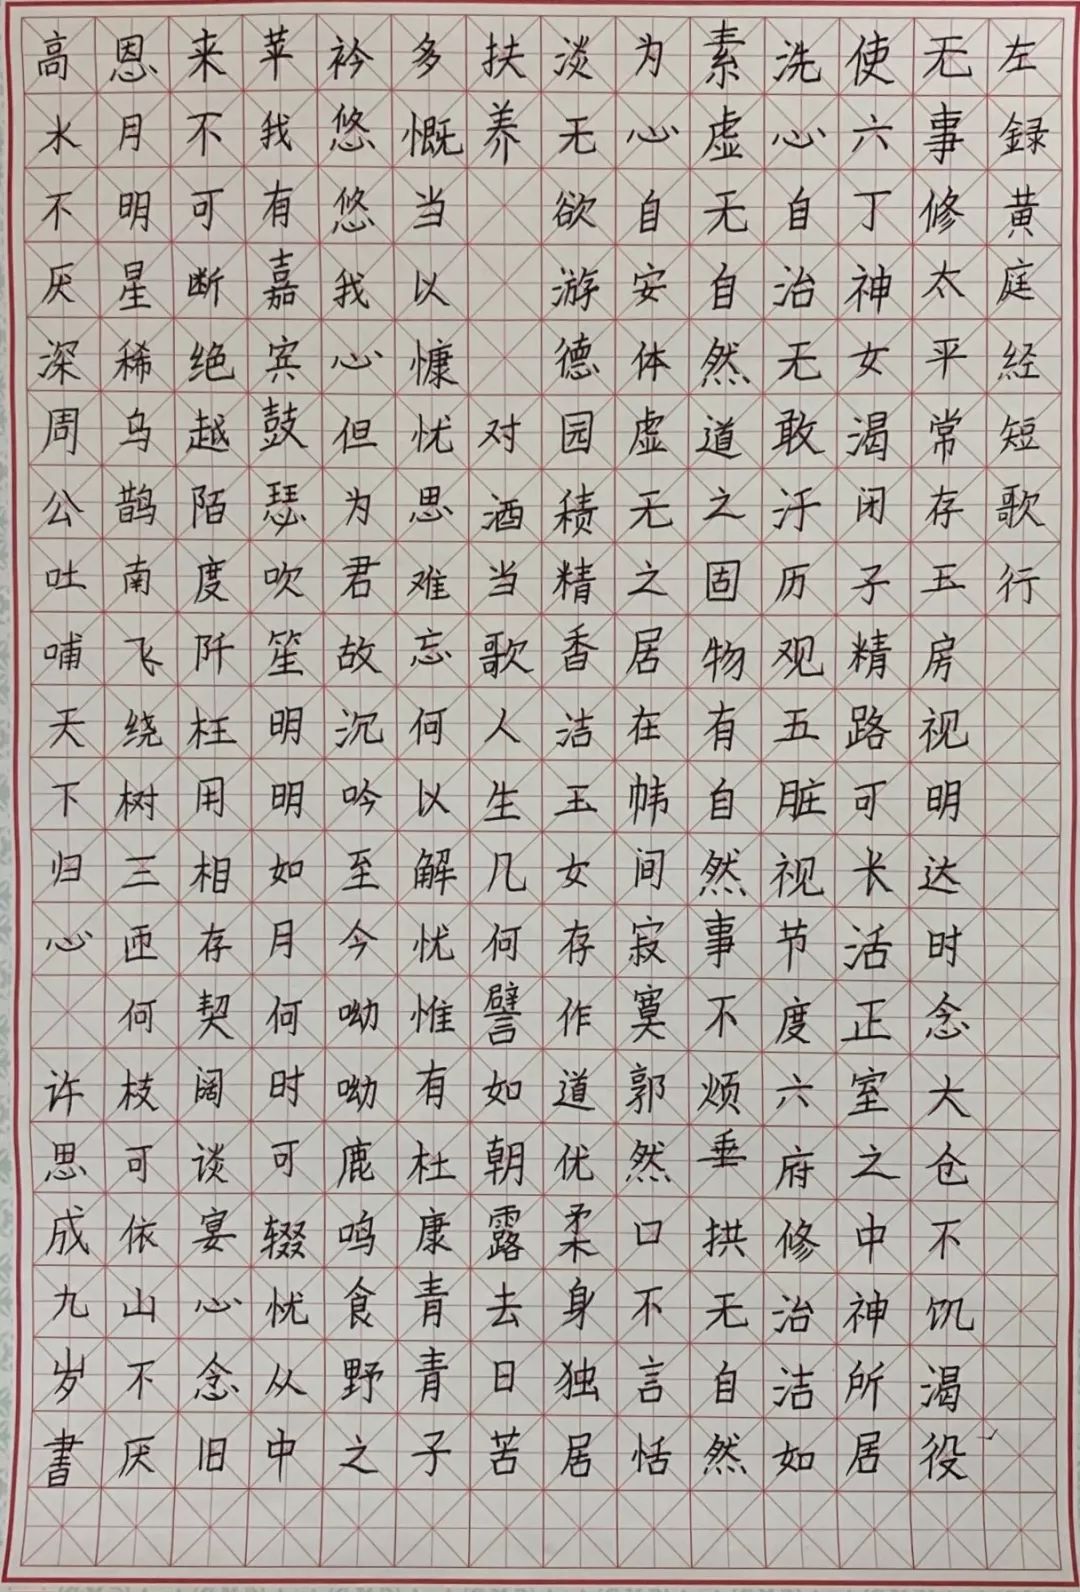 左録黄庭経短歌行
无事修太平常存玉房视明达时念大仓不饥渴役
使六丁神女渴闭子精路可长活正室之中神所居
洗心自治无敢汙历观五脏视节度六府修治洁如
素虚无自然道之固物有自然事不烦垂拱无自然
为心自安体虚无之居在帏间寂寞郭然口不言恬
淡无欲游德园积精香洁玉女存作道优柔身独居
扶养 对酒当歌人生几何譬如朝露去日苦
多慨当以慷忧思难忘何以解忧惟有杜康青青子
衿悠悠我心但为君故沉吟至今呦呦鹿鸣食野之
苹我有嘉宾鼓瑟吹笙明明如月何时可辍忧从中
来不可断绝越陌度阡枉用相存契阔谈宴心念旧
恩月明星稀乌鹊南飞绕树三匝何枝可依山不厌
高水不厌深周公吐哺天下归心 许思成九岁書